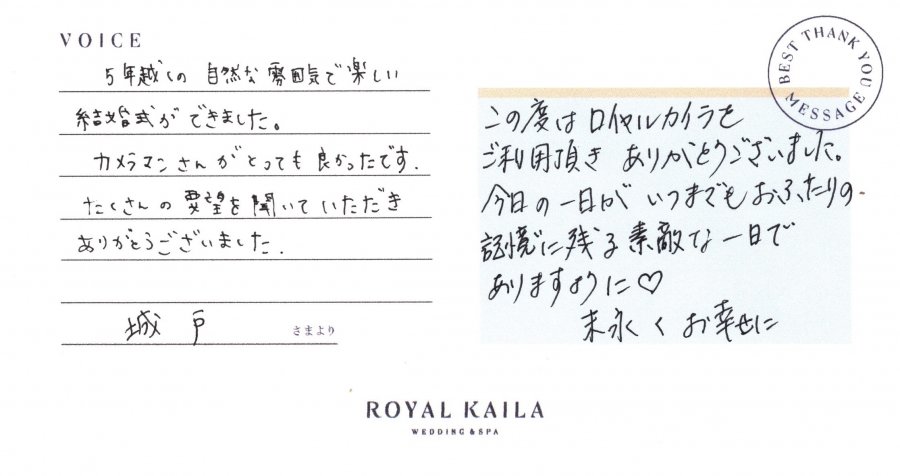 VOICE
5年越しの 自然な雰囲気で楽しい
結婚式ができました。
カメラマンさんがとっても良かったです.
たくさんの要望を聞いていただき
ありがとうございました.
城戸 さまより
BEST THANK YOU
MESSAGE
この度はロイヤルカイラを
ご利用頂き ありがとうございました。
今日の一日が いつまでもおふたりの
記憶に残る素敵な一日で
ありますように♡
末永く お幸せに
ROYAL KAILA
WEDDING & SPA